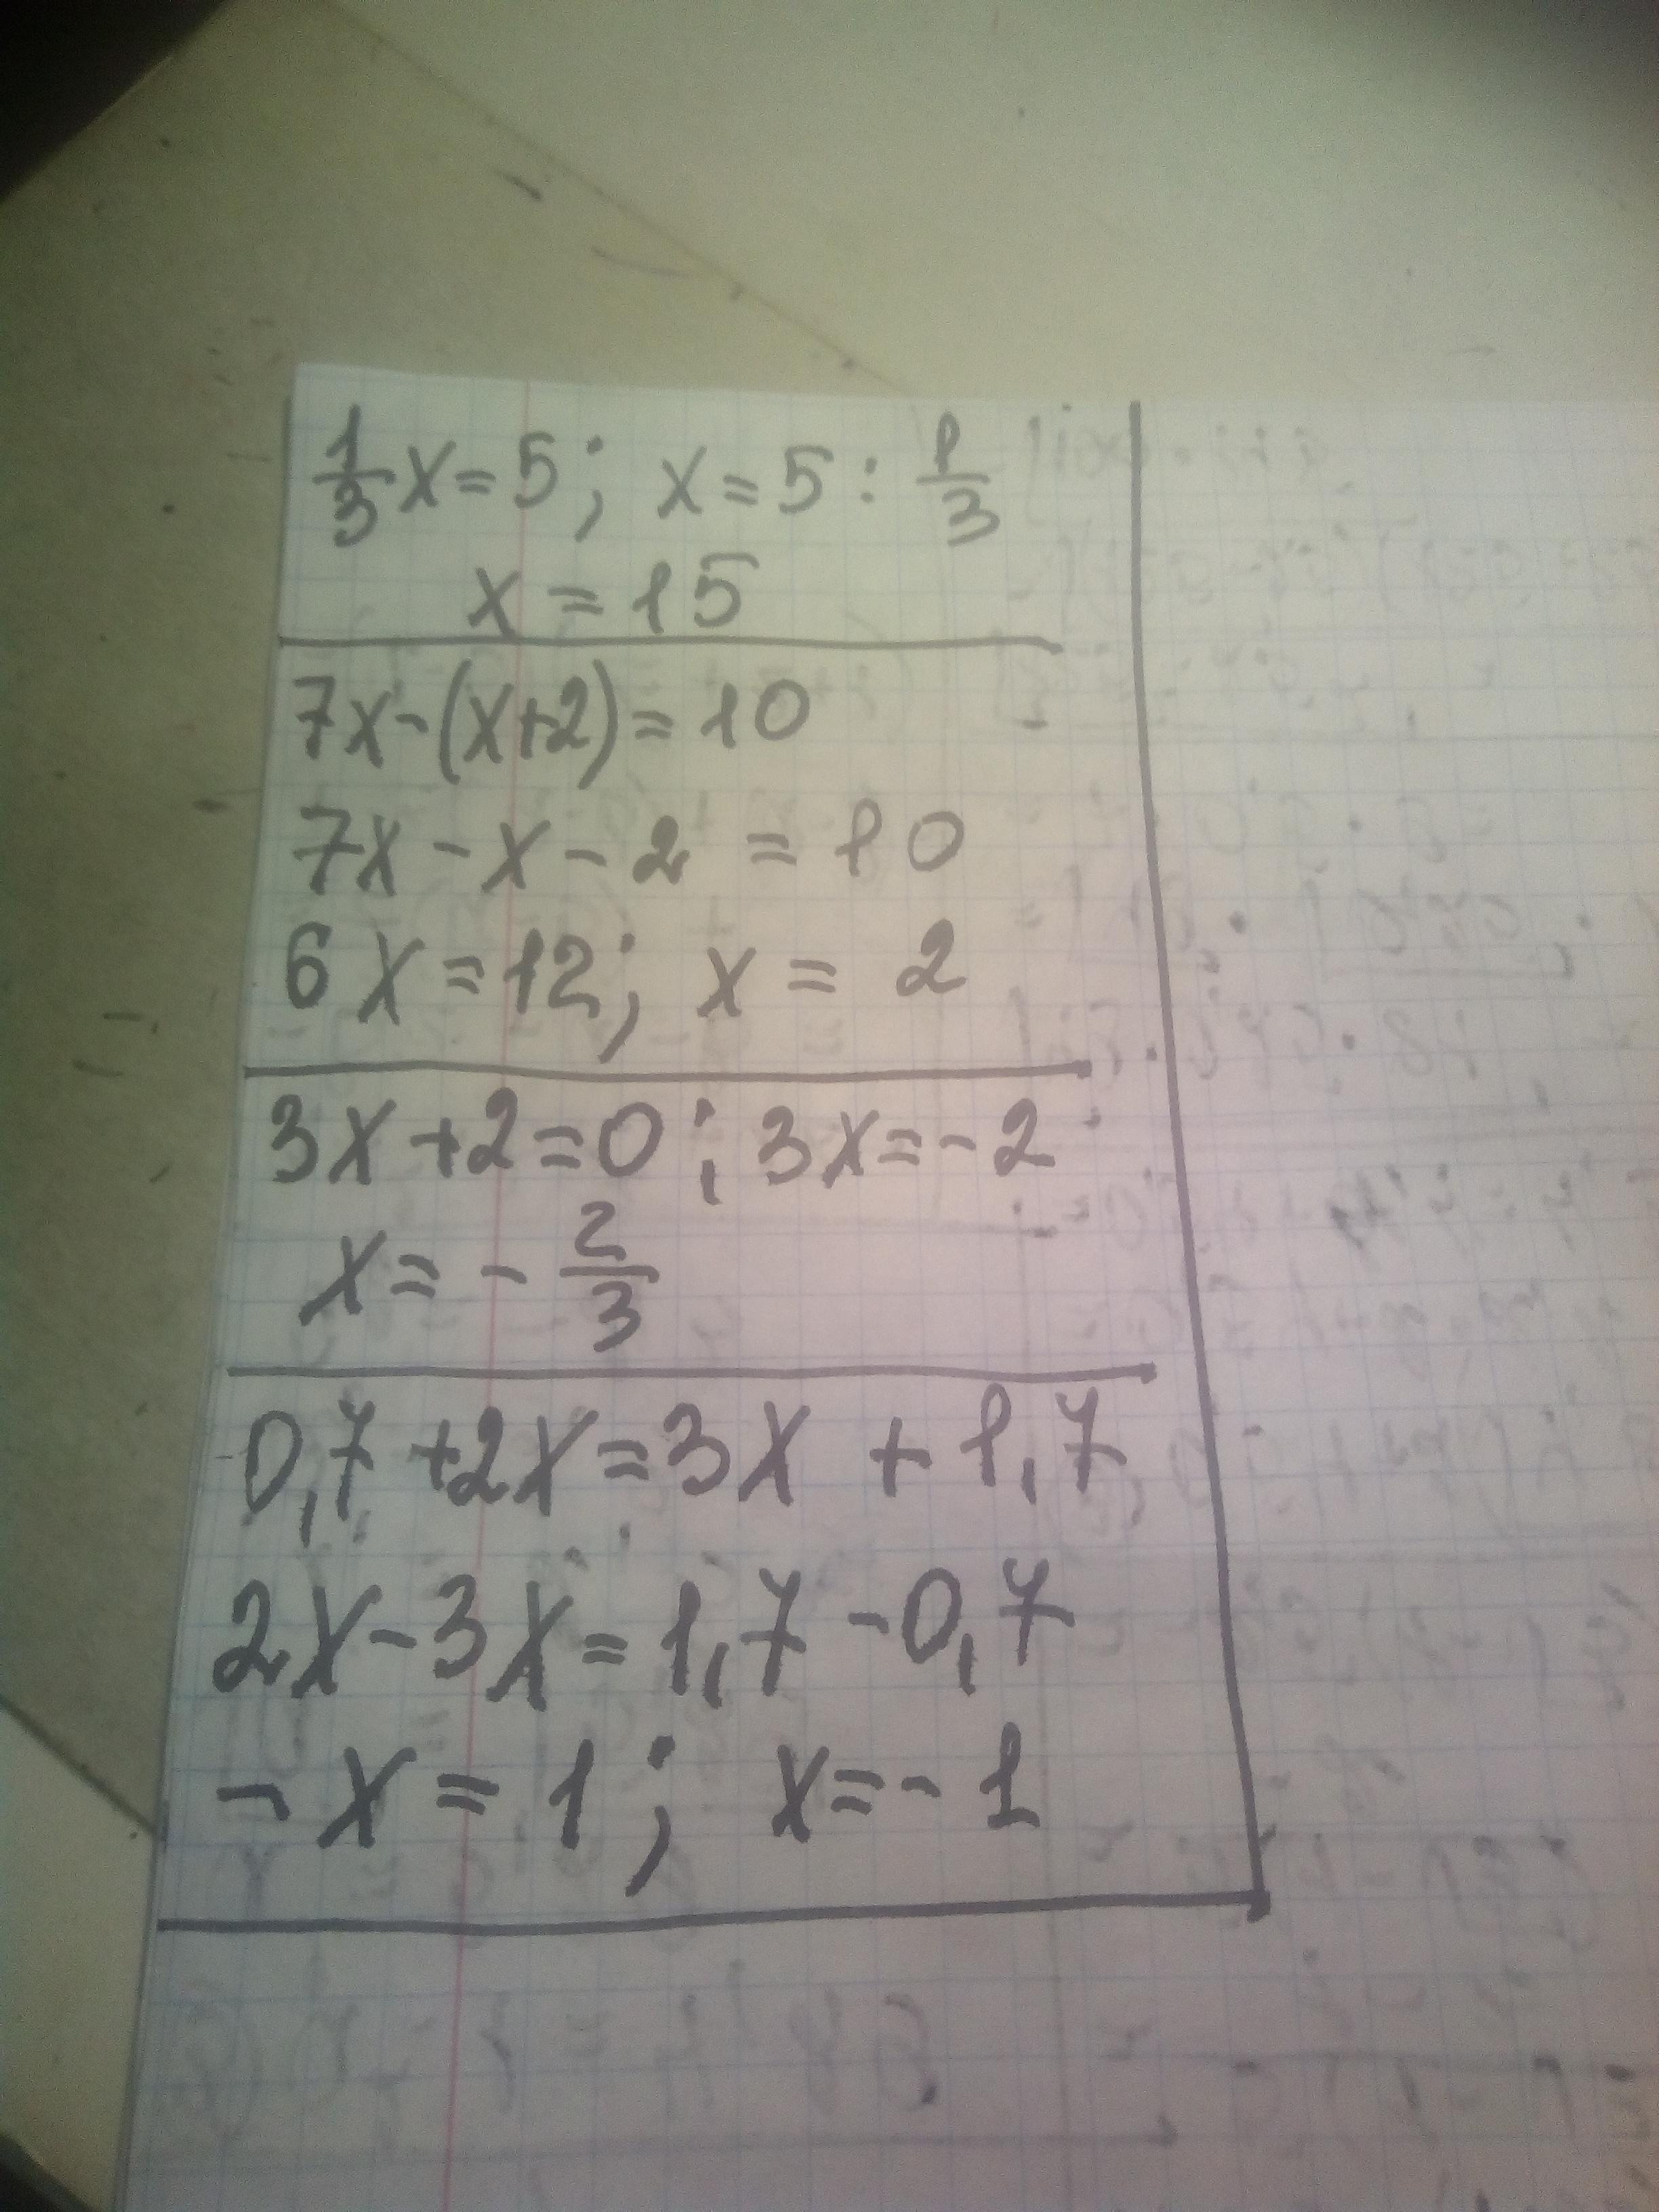 1/3 x = 5; x = 5 : 1/3
x = 15
7x - (x+2) = 10
7x - x - 2 = 10
6x = 12; x = 2
3x + 2 = 0; 3x = -2
x = - 2/3
0,7 + 2x = 3x + 1,7
2x - 3x = 1,7 - 0,7
-x = 1; x = -1